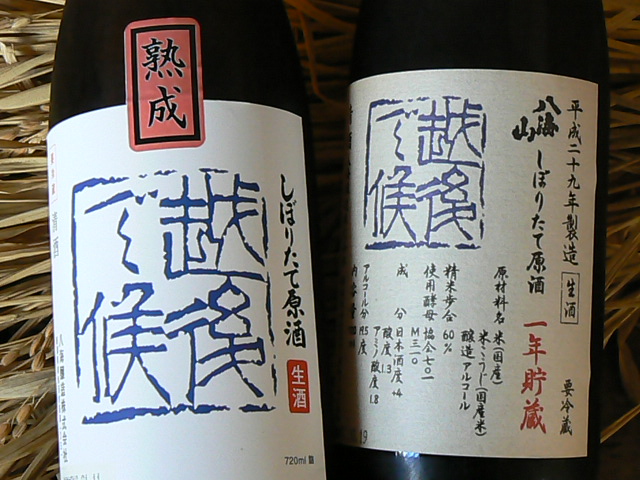 熟成
しぼりたて原酒
越後
で候
生酒
清酒
八海醸造株式会社
720ml
平成二十九年製造
生酒
要冷蔵
八海山
しぼりたて原酒
一年貯蔵
越後
で候
原材料名 米(国産)
米こうじ(国産米)
醸造アルコール
精米歩合 60%
使用酵母 協会七〇一
M三一〇
成分 日本酒度 +4
酸度 1.3
アミノ酸度 1.8
アルコール分 19.5度